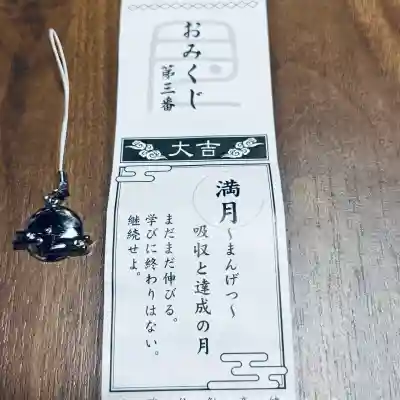 おみくじ
第三番
大吉
満月
〜まんげつ〜
吸収と達成の月
まだまだ伸びる。
学びに終わりはない。
継続せよ。